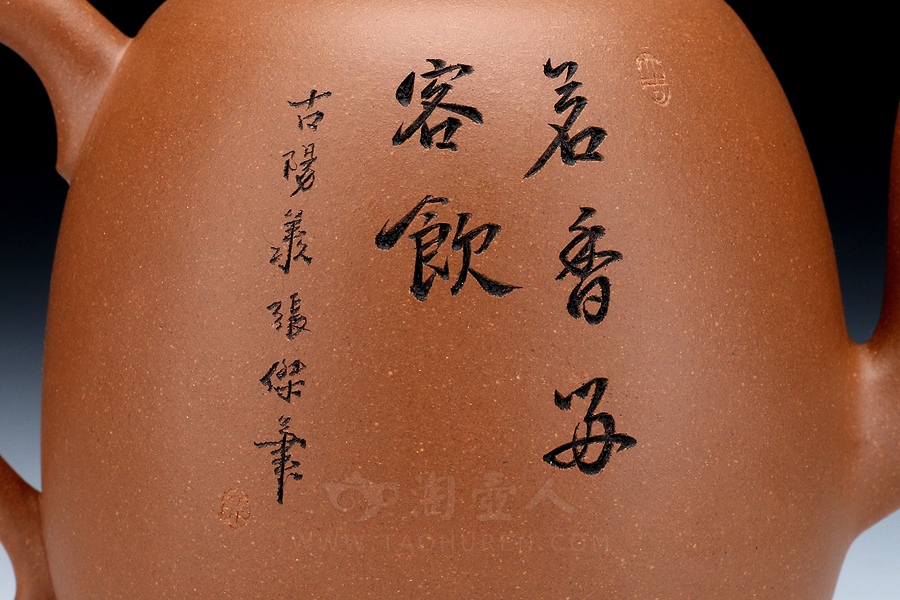 茗香留
客飲
古陽羨張傑筆
淘壶人
WWW.TAOHUREN.COM